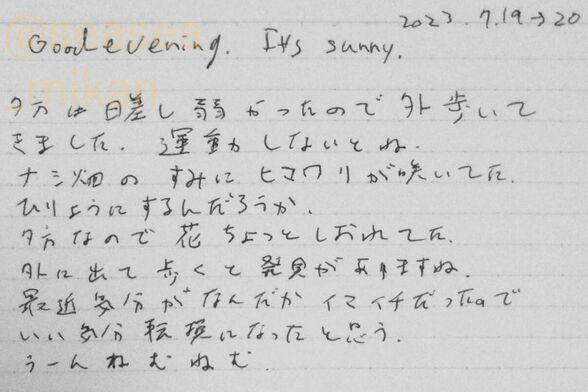 2023.7.19→20
Good evening. It's sunny.
夕方は日差し弱かったので外歩いて
きました。運動しないとね。
ナシ畑のすみにヒマワリが咲いてた。
ひりょうにするんだろうか。
夕方なので花ちょっとしおれてた。
外に出て歩くと発見がありますね。
最近気分がなんだかイマイチだったので
いい気分転換になったと思う。
うーんねむねむ